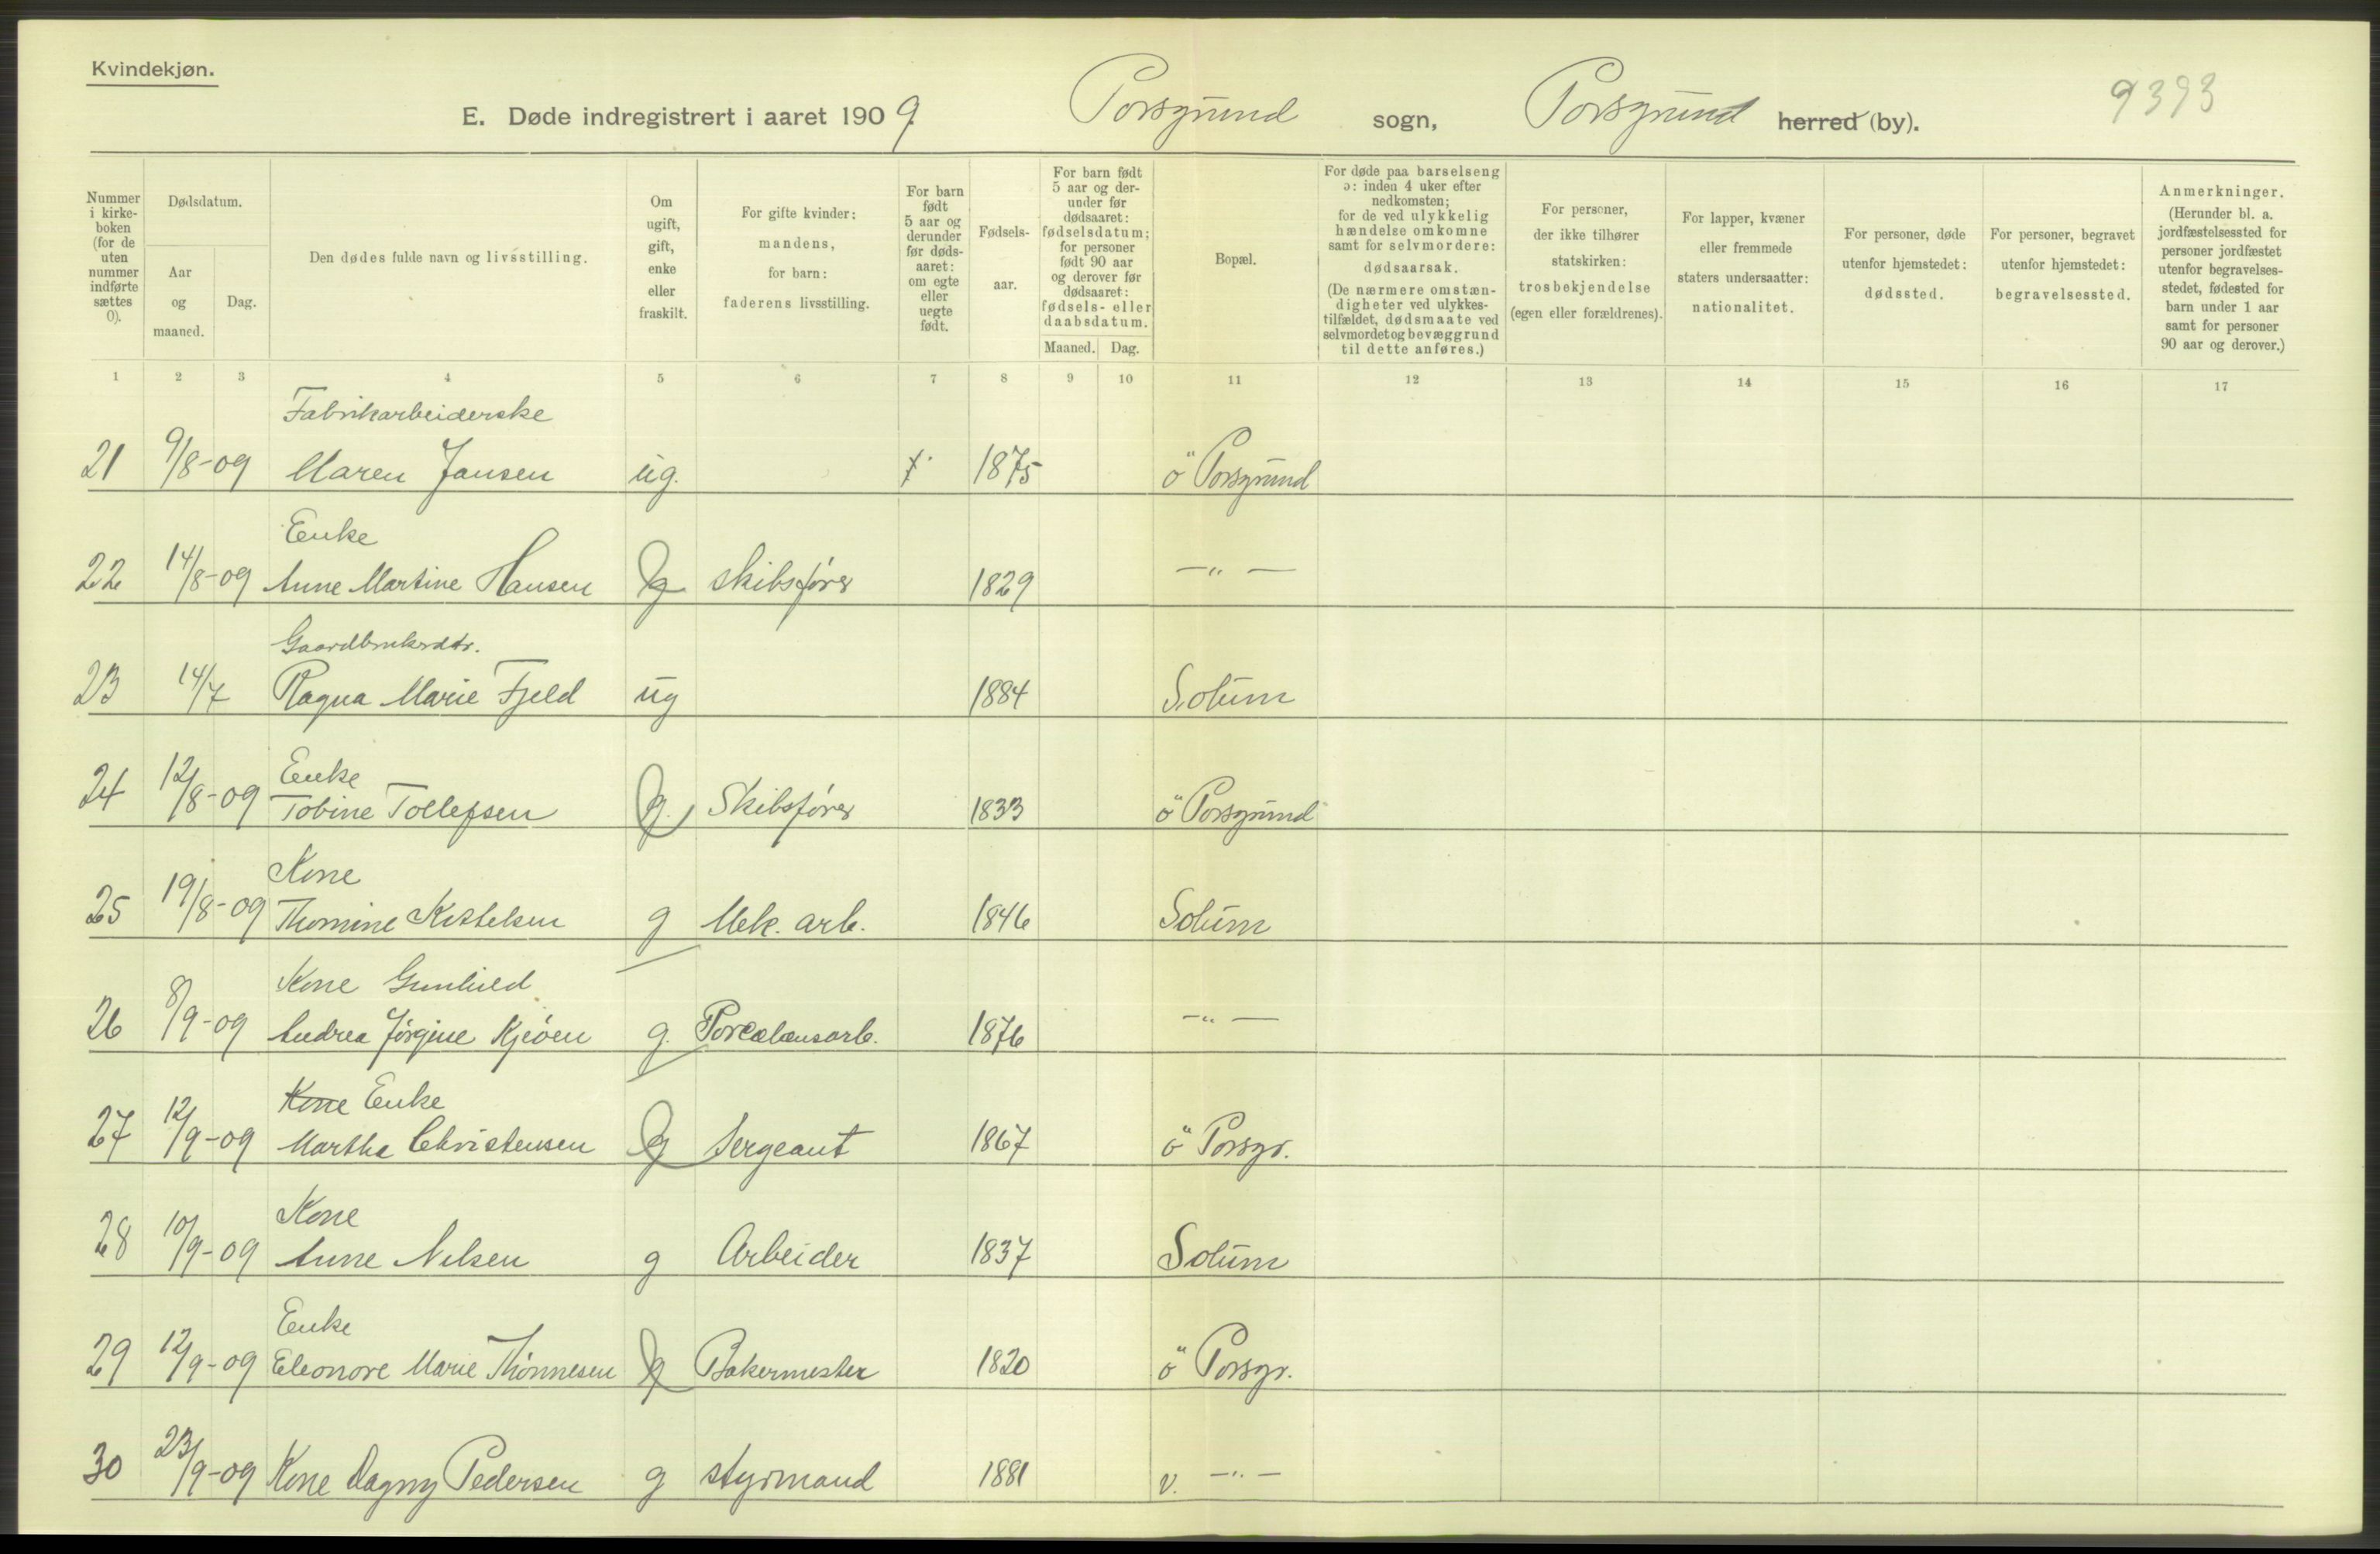 Kvindekjøn.
E. Døde indregistrert i aaret 1909. Porsgrund sogn, Porsgrund herred (by).
9393
Nummer i kirkeboken (for de uten nummer indførte sættes 0).
Dødsdatum.
Aar og maaned.
Dag.
Den dødes fulde navn og livsstilling.
Om ugift, gift, enke eller fraskilt.
For gifte kvinder: mandens, for barn: faderens livsstilling.
For barn født 5 aar og derunder før dødsaaret: om egte eller uegte født.
Fødselsaar.
For barn født 5 aar og derunder før dødsaaret: fødselsdatum; for personer født 90 aar og derover før dødsaaret: fødsels- eller daabsdatum.
Maaned. Dag.
Bopæl.
For døde paa barselseng ɔ: inden 4 uker efter nedkomsten; for de ved ulykkelig hændelse omkomne samt for selvmordere: dødsaarsak. (De nærmere omstændigheter ved ulykkestilfældet, dødsmaate ved selvmordet og bevæggrund til dette anføres.)
For personer, der ikke tilhører statskirken: trosbekjendelse (egen eller forældrenes).
For lapper, kvæner eller fremmede staters undersaatter: nationalitet.
For personer, døde utenfor hjemstedet: dødssted.
For personer, begravet utenfor hjemstedet: begravelsessted.
Anmerkninger. (Herunder bl. a. jordfæstelsessted for personer jordfæstet utenfor begravelsesstedet, fødested for barn under 1 aar samt for personer 90 aar og derover.)
1 2 3 4 5 6 7 8 9 10 11 12 13 14 15 16 17
Fabrikarbeiderske
21 9/8-09 Maren Jansen ug. 1875 ö Porsgrund
Enke
22 14/8-09 Anne Martine Hansen g skibsfører 1829 —"—
Gaardbrukerdtr.
23 14/7 Ragna Marie Fjeld ug 1884 Solum
Enke
24 12/8-09 Tobine Tollefsen g. Skibsfører 1833 ö Porsgrund
Kone
25 19/8-09 Thomine Kittelsen g Mek. arb. 1846 Solum
Kone Gunhild
26 8/9-09 Andrea Jørgine Kjeöen g. Porcelænsarb. 1876 —"—
Kone Enke
27 12/9-09 Martha Christensen g Sergeant 1867 ö Porsgr.
Kone
28 10/9-09 Anne Nilsen g Arbeider 1837 Solum
Enke
29 12/9-09 Eleonore Marie Thönnesen g Bakermester 1820 ö Porsgr.
30 23/9-09 Kone Dagny Pedersen g styrmand 1881 v. —"—